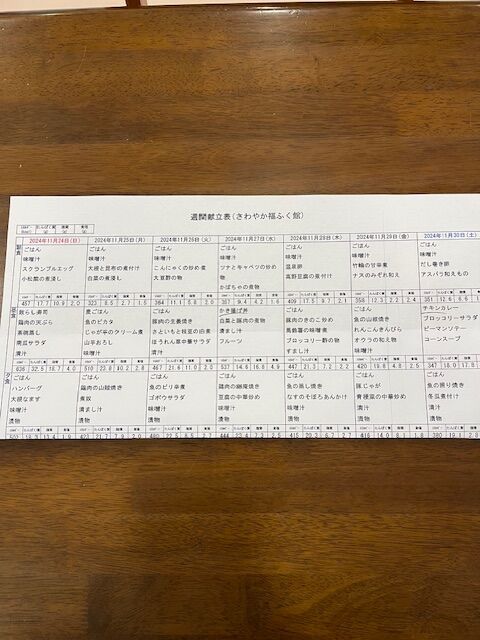 週間献立表(さわやか福ふく館)
2024年11月24日(日) 2024年11月25日(月) 2024年11月26日(火) 2024年11月27日(水) 2024年11月28日(木) 2024年11月29日(金) 2024年11月30日(土)
朝食
ごはん ごはん ごはん ごはん ごはん ごはん ごはん
味噌汁 味噌汁 味噌汁 味噌汁 味噌汁 味噌汁 味噌汁
スクランブルエッグ 大根と昆布の煮付け こんにゃくの炒め煮 ツナとキャベツの炒め物 温泉卵 竹輪の甘辛煮 だし巻き卵
小松菜の煮浸し 白菜の煮浸し 大豆酢の物 かぼちゃの煮物 高野豆腐の煮付け ナスのみぞれ和え アスパラ和えもの
457 17.7 10.9 2.0 323 8.5 2.7 1.5 364 11.1 5.8 2.0 357 9.4 4.2 1.6 409 17.5 9.7 2.1 358 12.3 2.2 2.4 351 12.6 6.6
散らし寿司 煮豆 ごはん かき揚げ丼 ごはん ごはん チキンカレー
鶏肉の天ぷら 魚のピカタ 豚肉の生姜焼き 白菜と豚肉の煮物 豚肉のきのこ炒め 魚の山椒焼き ブロッコリーサラダ
茶碗蒸し じゃが芋のクリーム煮 さといもと枝豆の旨煮 清まし汁 馬鈴薯の味噌煮 れんこんきんぴら ピーマンソテー
胡瓜サラダ 山芋おろし ほうれん草中華サラダ フルーツ ブロッコリー酢の物 オクラの和え物 コーンスープ
清汁 味噌汁 清汁 すまし汁 味噌汁
636 32.5 18.7 4.0 510 23.8 10.2 2.8 467 21.6 11.0 2.0 537 14.6 16.8 4.9 447 21.0 13.1 420 19.8 4.8 2.5 347 18.0 17.8
夕食
ごはん ごはん ごはん ごはん ごはん ごはん ごはん
ハンバーグ 鶏肉の山賊焼き 魚のピリ辛煮 鶏肉の幽庵焼き 魚の蒸し焼き 豚じゃが 魚の照り焼き
大根なます 煮奴 ゴボウサラダ 豆腐の中華炒め なすのそぼろあんかけ 青梗菜の中華炒め 冬瓜煮付け
味噌汁 清まし汁 味噌汁 味噌汁 味噌汁 清汁 清汁
漬物 漬物 漬物 漬物 漬物 漬物 漬物